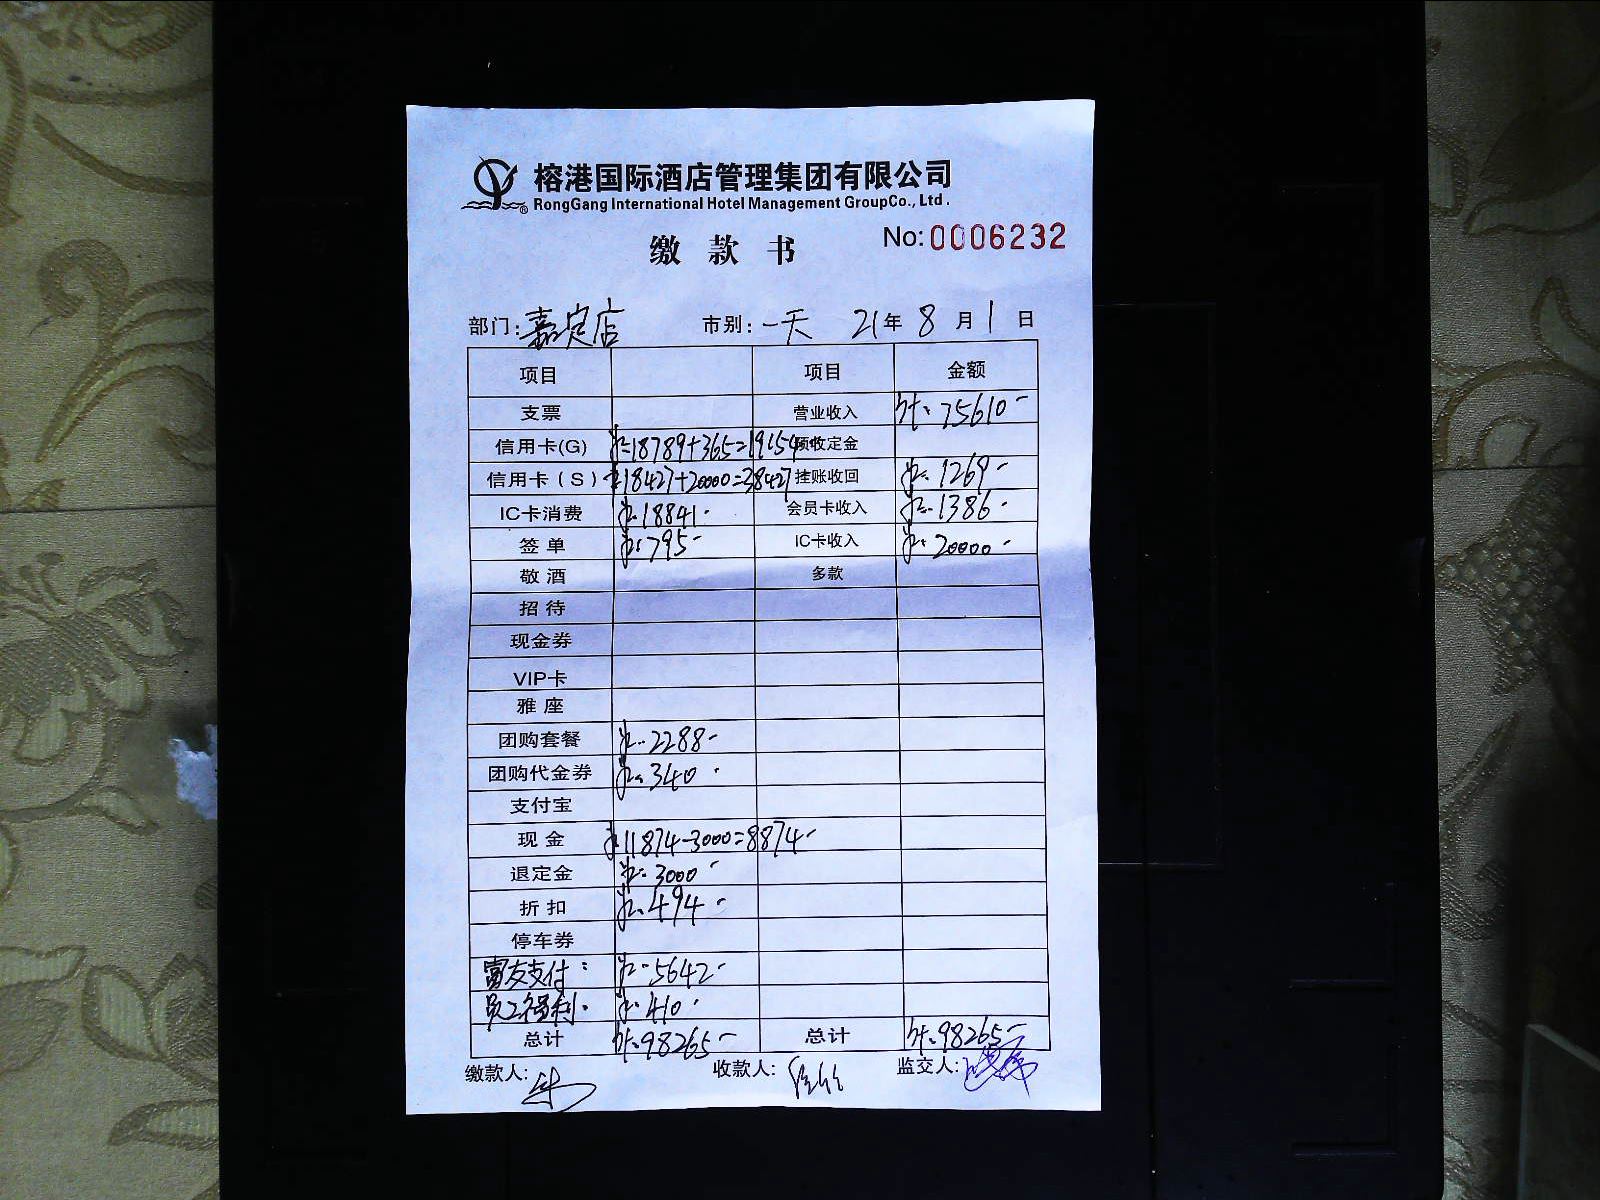 榕港国际酒店管理集团有限公司
RongGang International Hotel Management GroupCo., Ltd.
No:0006232
缴款书
部门:嘉定店 市别:一天 21年8月1日
项目 项目 金额
支票 营业收入 75610-
信用卡(G) 18789+365=19154 预收定金
信用卡(S) 18427+20000=38427 挂账收回 1269-
IC卡消费 18841- 会员卡收入 1386-
签单 795- IC卡收入 20000-
敬酒 多款
招待
现金券
VIP卡
雅座
团购套餐 2288-
团购代金券 340-
支付宝
现金 11874-3000=8874-
退定金 3000-
折扣 494-
停车券
富友支付: 5642-
员工福利: 410-
总计 98265- 总计 98265-
缴款人: 收款人: 监交人: